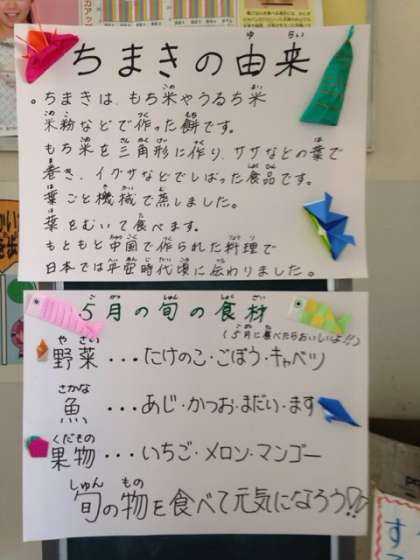 ちまきの由来
。ちまきは、もち米やうるち米
米粉などで作った餅です。
もち米を三角形に作り、ササなどの葉で
巻き、イグサなどでしばった食品です。
葉ごと機械で蒸しました。
葉をむいて食べます。
もともと中国で作られた料理で
日本では平安時代頃に伝わりました。
5月の旬の食材
(5月に食べたらおいしいよ!!)
野菜・・・たけのこ・ごぼう・キャベツ
魚・・・あじ・かつお・まだい・ます
果物・・・いちご・メロン・マンゴー
旬の物を食べて元気になろう♡